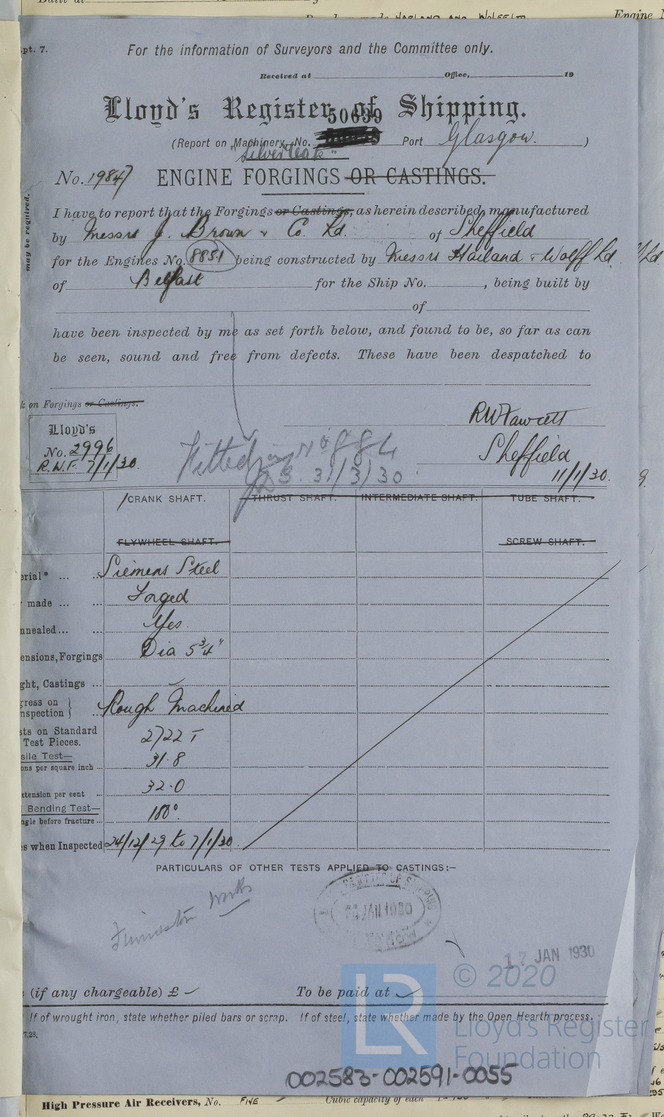 HARLAND AND WOLFF LD
Engine
pt. 7.
For the information of Surveyors and the Committee only.
Received at Office, 19
Lloyd's Register of Shipping.
50639
(Report on Machinery, No. Port Glasgow. )
No. 19847 ENGINE FORGINGS OR CASTINGS.
I have to report that the Forgings or Castings, as herein described, manufactured
by Messrs J. Brown & Co. Ld. of Sheffield
for the Engines No. 8851 being constructed by Messrs Harland & Wolff Ld.
of Belfast for the Ship No. , being built by
of
have been inspected by me as set forth below, and found to be, so far as can
be seen, sound and free from defects. These have been despatched to
may be required.
on Forgings or Castings.
RW Fawcett
Lloyd's
No. 2996
R.W.F. 7/1/30.
Fitted
31/3/30
Sheffield
11/1/30.
CRANK SHAFT. THRUST SHAFT. INTERMEDIATE SHAFT. TUBE SHAFT.
FLYWHEEL SHAFT. SCREW SHAFT.
erial* ... ... Siemens Steel
made ... ... Forged
nnealed ... ... Yes
ensions, Forgings Dia 5¾"
ght, Castings ...
gress on
nspection } ... Rough Machined
sts on Standard
Test Pieces. 2722 T
sile Test—
ons per square inch ... 31.8
xtension per cent ... 32.0
Bending Test—
ngle before fracture ... 180°
s when Inspected 24/12/29 to 7/1/30.
PARTICULARS OF OTHER TESTS APPLIED TO CASTINGS:—
Works
JAN 1930
17 JAN 1930
(if any chargeable) £ To be paid at
© 2020
Lloyd's Register
Foundation
If of wrought iron, state whether piled bars or scrap. If of steel, state whether made by the Open Hearth process.
002583-002591-0055
High Pressure Air Receivers, No. FIVE Cubic capacity of each